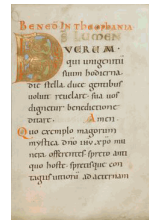 BENED IN THEOPHANIA
DS LUMEN
VERUM.
qui unigeniti
suum hodierna
die stella duce gentibus
uoluit reuelare. sua uos
dignetur benedictione
ditare. Amen.
Quo exemplo magorum
mystica dno ihu xpo mu
nera offerentes. spreto anti
quo hoste. spretisque con
tagiis uitiorum. ad aeternam